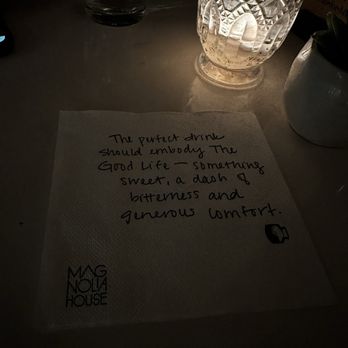 The perfect drink
should embody The
Good Life — something
sweet, a dash of
bitterness and
generous comfort.
MAG
NOLIA
HOUSE